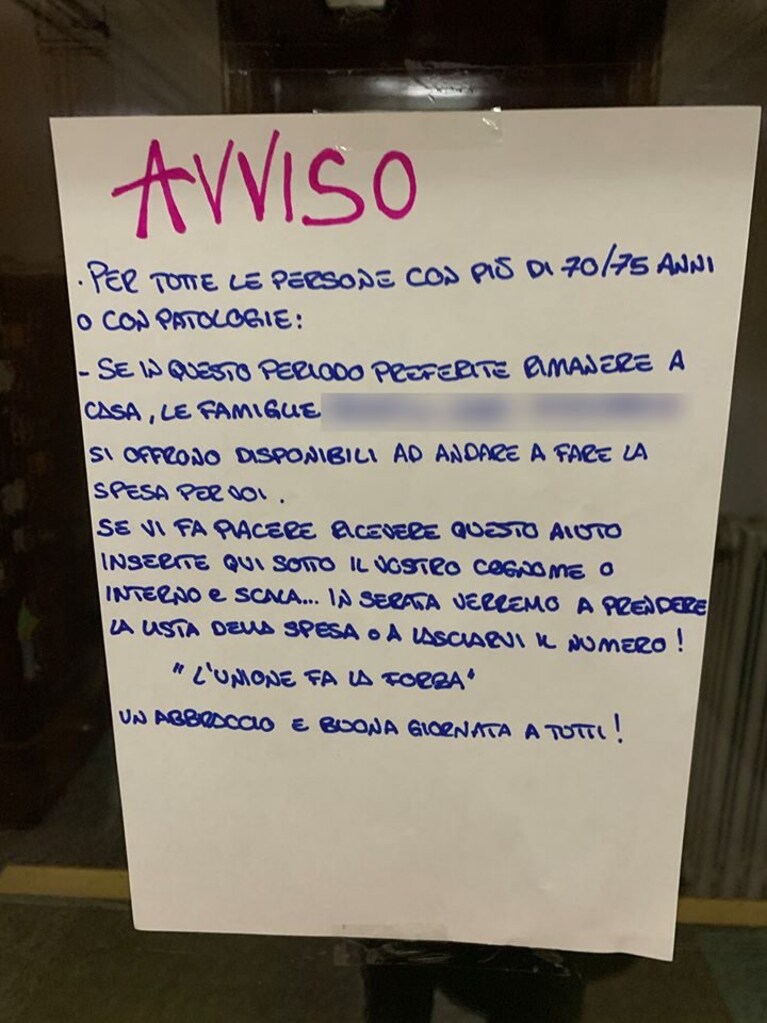 AVVISO
· PER TUTTE LE PERSONE CON PIÙ DI 70/75 ANNI
O CON PATOLOGIE:
- SE IN QUESTO PERIODO PREFERITE RIMANERE A
CASA, LE FAMIGLIE
SI OFFRONO DISPONIBILI AD ANDARE A FARE LA
SPESA PER VOI.
SE VI FA PIACERE RICEVERE QUESTO AIUTO
INSERITE QUI SOTTO IL VOSTRO COGNOME O
INTERNO e SCALA... IN SERATA VERREMO A PRENDERE
LA LISTA DELLA SPESA O A LASCIARVI IL NUMERO!
"L'UNIONE FA LA FORZA"
UN ABBRACCIO E BUONA GIORNATA A TUTTI!